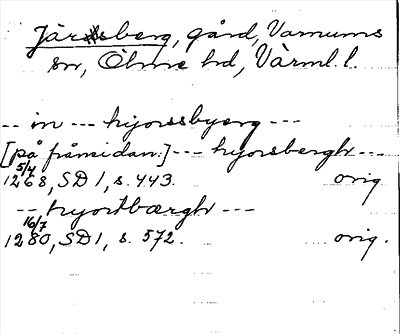 Järsberg, gård, Varnums
sn, Ölme hd, Värml. l.
-- in --- hyorssbyærg ---
[på framsidan:] --- hyorsberghr ---
5/4
1268, SD 1, s. 443. orig.
-- hyortbærghr ---
16/7
1280, SD 1, s. 572. orig.